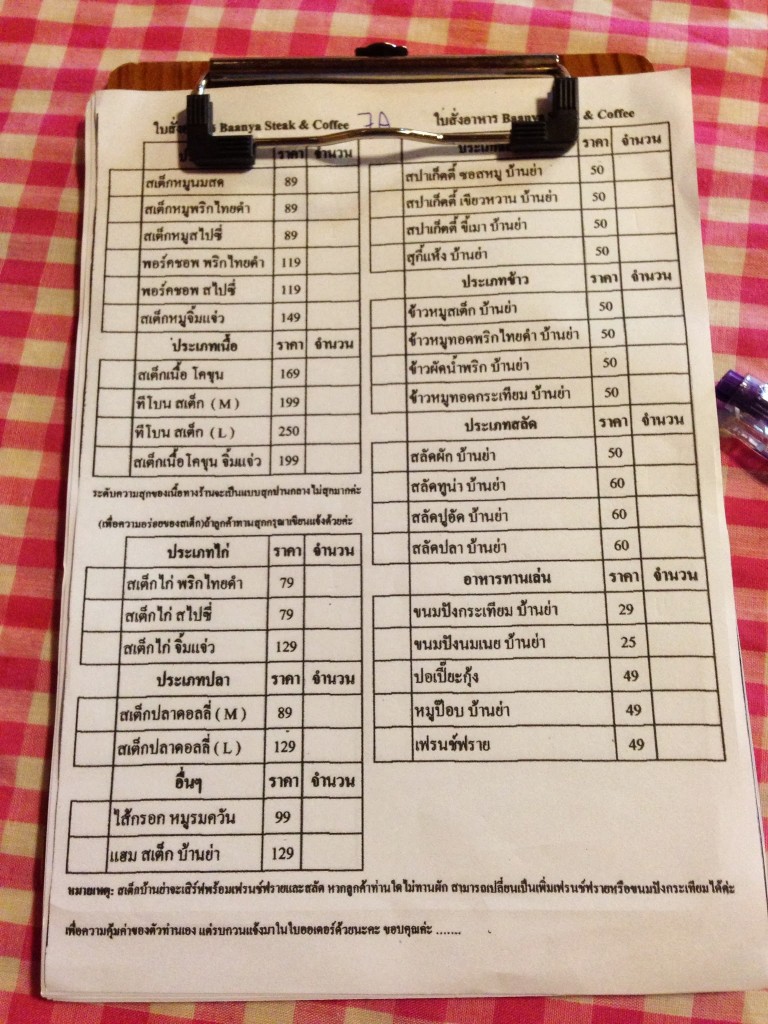 Baanya Steak & Coffee 7A
ราคา จำนวน
สเต็กหมูนมสด 89
สเต็กหมูพริกไทยดำ 89
สเต็กหมูสไปซี่ 89
พอร์คชอพ พริกไทยดำ 119
พอร์คชอพ สไปซี่ 119
สเต็กหมูจิ้มแจ่ว 149
ประเภทเนื้อ ราคา จำนวน
สเต็กเนื้อ โคขุน 169
ทีโบน สเต็ก (M) 199
ทีโบน สเต็ก (L) 250
สเต็กเนื้อโคขุน จิ้มแจ่ว 199
ระดับความสุกของเนื้อทางร้านจะเป็นแบบสุกปานกลาง ไม่สุกมากค่ะ
(เพื่อความอร่อยของสเต็ก)ถ้าลูกค้าทานสุกกรุณาเขียนแจ้งด้วยค่ะ
ประเภทไก่ ราคา จำนวน
สเต็กไก่ พริกไทยดำ 79
สเต็กไก่ สไปซี่ 79
สเต็กไก่ จิ้มแจ่ว 129
ประเภทปลา ราคา จำนวน
สเต็กปลาดอลลี่ (M) 89
สเต็กปลาดอลลี่ (L) 129
อื่นๆ ราคา จำนวน
ไส้กรอก หมูรมควัน 99
แฮม สเต็ก บ้านย่า 129
ใบสั่งอาหาร Baanya & Coffee
ราคา จำนวน
สปาเก็ตตี้ ซอสหมู บ้านย่า 50
สปาเก็ตตี้ เขียวหวาน บ้านย่า 50
สปาเก็ตตี้ ขี้เมา บ้านย่า 50
สุกี้แห้ง บ้านย่า 50
ประเภทข้าว ราคา จำนวน
ข้าวหมูสเต็ก บ้านย่า 50
ข้าวหมูทอดพริกไทยดำ บ้านย่า 50
ข้าวผัดน้ำพริก บ้านย่า 50
ข้าวหมูทอดกระเทียม บ้านย่า 50
ประเภทสลัด ราคา จำนวน
สลัดผัก บ้านย่า 50
สลัดทูน่า บ้านย่า 60
สลัดปูอัด บ้านย่า 60
สลัดปลา บ้านย่า 60
อาหารทานเล่น ราคา จำนวน
ขนมปังกระเทียม บ้านย่า 29
ขนมปังนมเนย บ้านย่า 25
ปอเปี๊ยะกุ้ง 49
หมูป๊อบ บ้านย่า 49
เฟรนช์ฟราย 49
หมายเหตุ: สเต็กบ้านย่าจะเสิร์ฟพร้อมเฟรนช์ฟรายและสลัด หากลูกค้าท่านใดไม่ทานผัก สามารถเปลี่ยนเป็นเพิ่มเฟรนช์ฟรายหรือขนมปังกระเทียมได้ค่ะ
เพื่อความคุ้มค่าของตัวท่านเอง แต่รบกวนแจ้งมาในใบออเดอร์ด้วยนะคะ ขอบคุณค่ะ .......